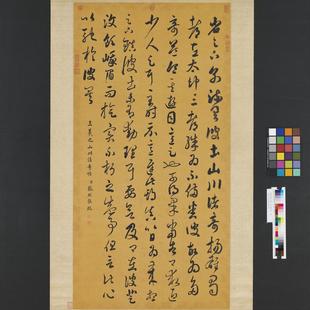 省足下別疏具彼土山川諸奇揚雄蜀
都左太沖三都殊為不備悉彼故為多
奇益令其遊目意足也可得果當告卿求迎
少人足耳至時示意遲此期真以日為歲想
足下鎮彼土未有動理耳要欲及卿在彼登
汶領峨眉而旋實不朽之盛事但言此心
以馳於彼矣
王羲之山川諸奇帖